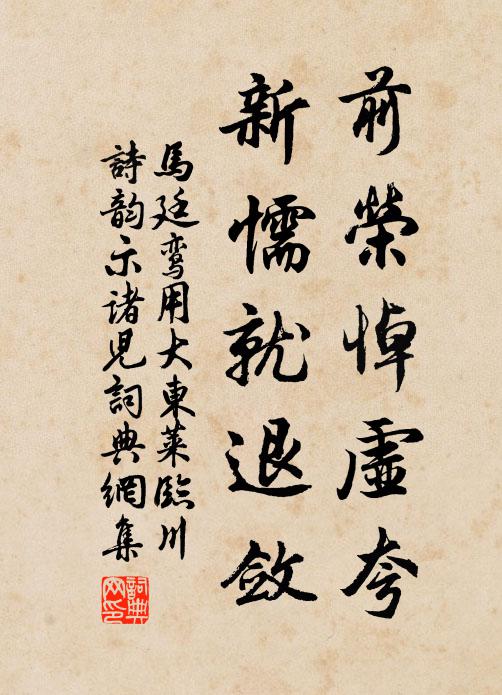 前榮悼虛夸
新懦就退斂
馬廷鸞用大東萊臨川
詩韵示諸兒詞典網集
詞典网印